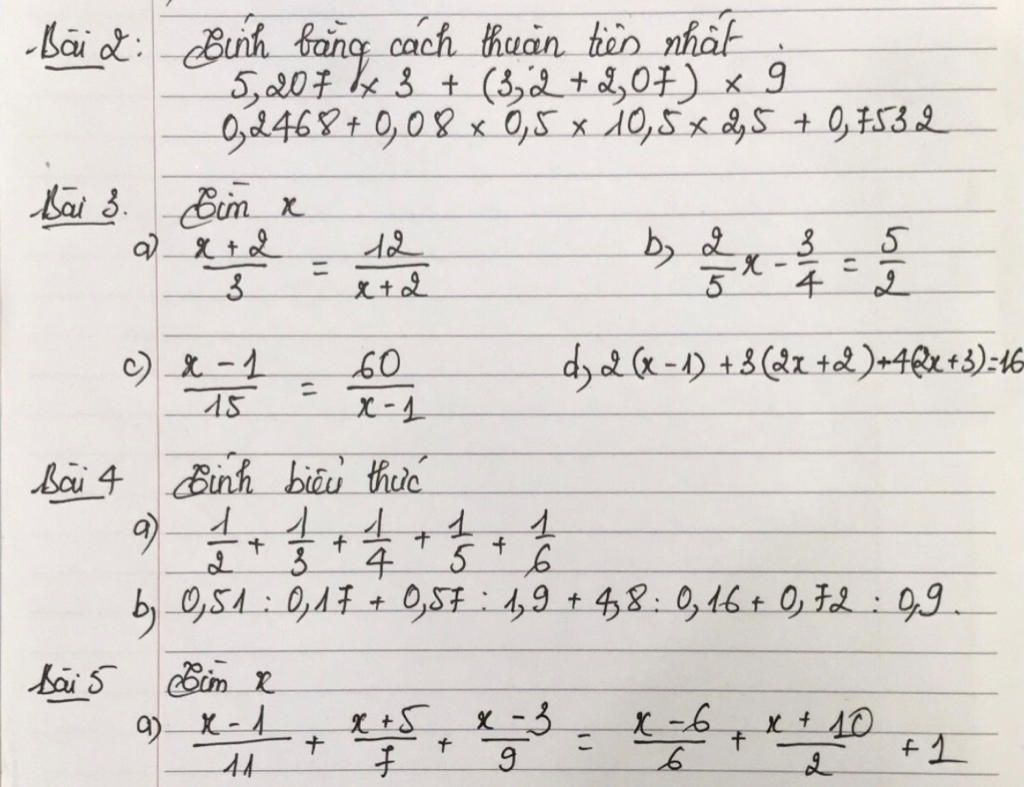 Bài 2: Tính bằng cách thuận tiện nhất.
5,207 x 3 + (3,2 + 2,07) x 9
0,2468 + 0,08 x 0,5 x 10,5 x 2,5 + 0,7532
Bài 3. Tìm x
a) (x + 2)/3 = 12/(x + 2) b) 2/5 x - 3/4 = 5/2
c) (x - 1)/15 = 60/(x - 1) d) 2(x - 1) + 3(2x + 2) + 4(2x + 3) = 16
Bài 4 Tính biểu thức
a) 1/2 + 1/3 + 1/4 + 1/5 + 1/6
b) 0,51 : 0,17 + 0,57 : 1,9 + 4,8 : 0,16 + 0,72 : 0,9.
Bài 5 Tìm x
a) (x - 1)/11 + (x + 5)/7 + (x - 3)/9 = (x - 6)/6 + (x + 10)/2 + 1